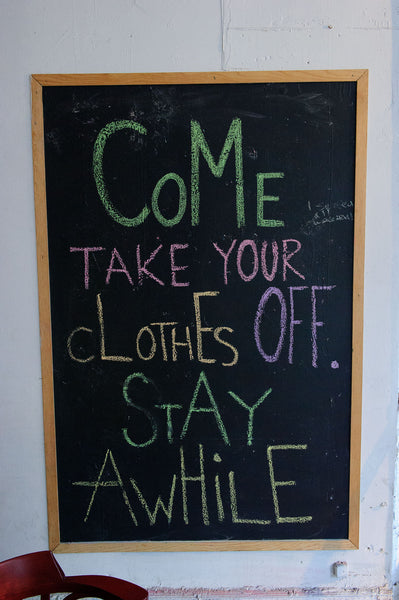 COME
TAKE YOUR
cLOTHES OFF.
StAY
AWHiLE